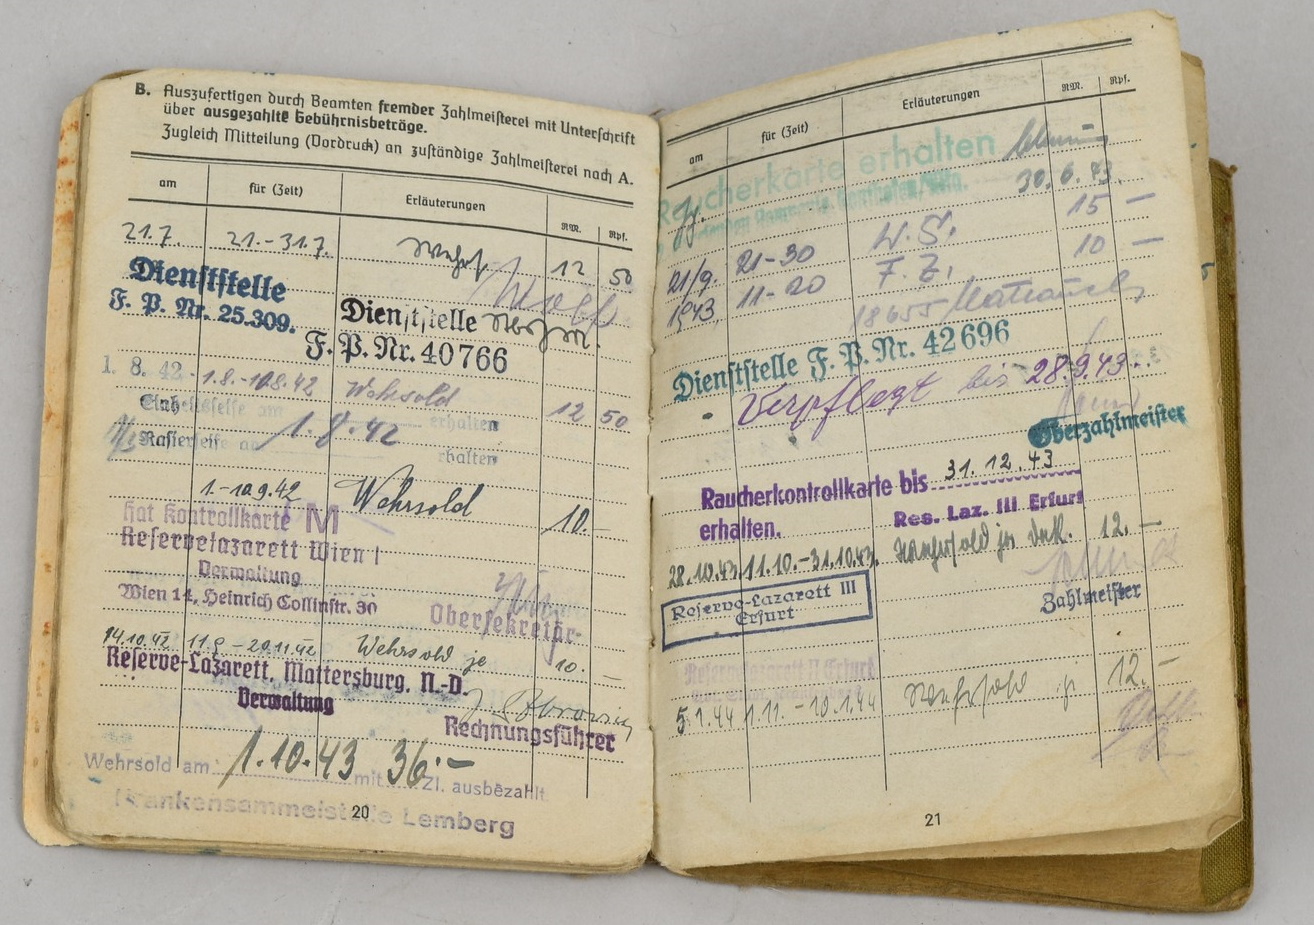 B. Auszufertigen durch Beamten fremder Zahlmeisterei mit Unterschrift
über ausgezahlte Gebührnisbeträge.
Zugleich Mitteilung (Vordruck) an zuständige Zahlmeisterei nach A.
am für (Zeit) Erläuterungen RM. Rpf.
21.7. 21.-31.7. 12 50
Dienststelle
F. P. Nr. 25.309.
Dienststelle
F. P. Nr. 40766
1. 8. 42 1.8.-10.8.42 Wehrsold 12 50
Einheitsseife am erhalten
Rasierseife an 1.8.42 erhalten
1.-10.9.42 Wehrsold 10.-
Hat Kontrollkarte M
Reservelazarett Wien I
Verwaltung
Wien 14, Heinrich Collinstr. 30
Obersekretär
14.10.42 11.9.-20.11.42 Wehrsold je 10.-
Reserve-Lazarett, Mattersburg, N.-D.
Verwaltung
Rechnungsführer
Wehrsold am 1.10.43 mit 36.- Zl. ausbezahlt
Krankensammelstelle Lemberg
20
am für (Zeit) Erläuterungen RM. Rpf.
Raucherkarte erhalten
30.6.43.
21/9. 21-30 W. S. 15 -
1943 11-20 F. Z. 10 -
18655
Dienststelle F. P. Nr. 42696
- Verpflegt bis 28.9.43.
Oberzahlmeister
Raucherkontrollkarte bis 31.12.43
erhalten. Res. Laz. III Erfurt
28.10.43 11.10.-31.10.43. Wehrsold je Dek. 12.-
Reserve-Lazarett III
Erfurt
Zahlmeister
Reservelazarett II Erfurt
5.1.44 1.11.-10.1.44 Wehrsold je 12.-
21